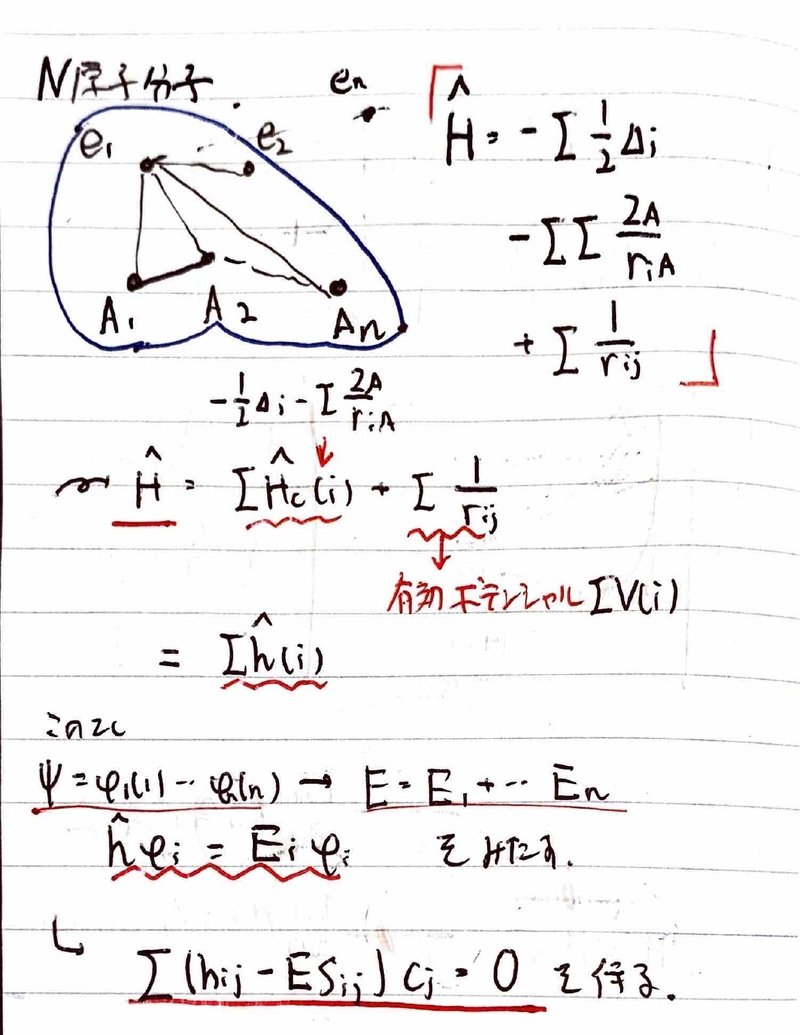 N原子分子
eₙ
e₁
e₂
A₁
A₂
Aₙ
「Ĥ = -Σ 1/2 Δi
-ΣΣ ZA/riA
+ Σ 1/rij 」
-1/2 Δi - Σ ZA/riA
↓
〜 Ĥ = ΣĤc(i) + Σ 1/rij
↓
有効ポテンシャル ΣV(i)
= Σĥ(i)
このとし
Ψ = φ₁(1)…φₙ(n) → E = E₁ + … Eₙ
ĥφi = Eiφi をみたす.
↳ Σ(hij - ESij) cj = 0 を得る.